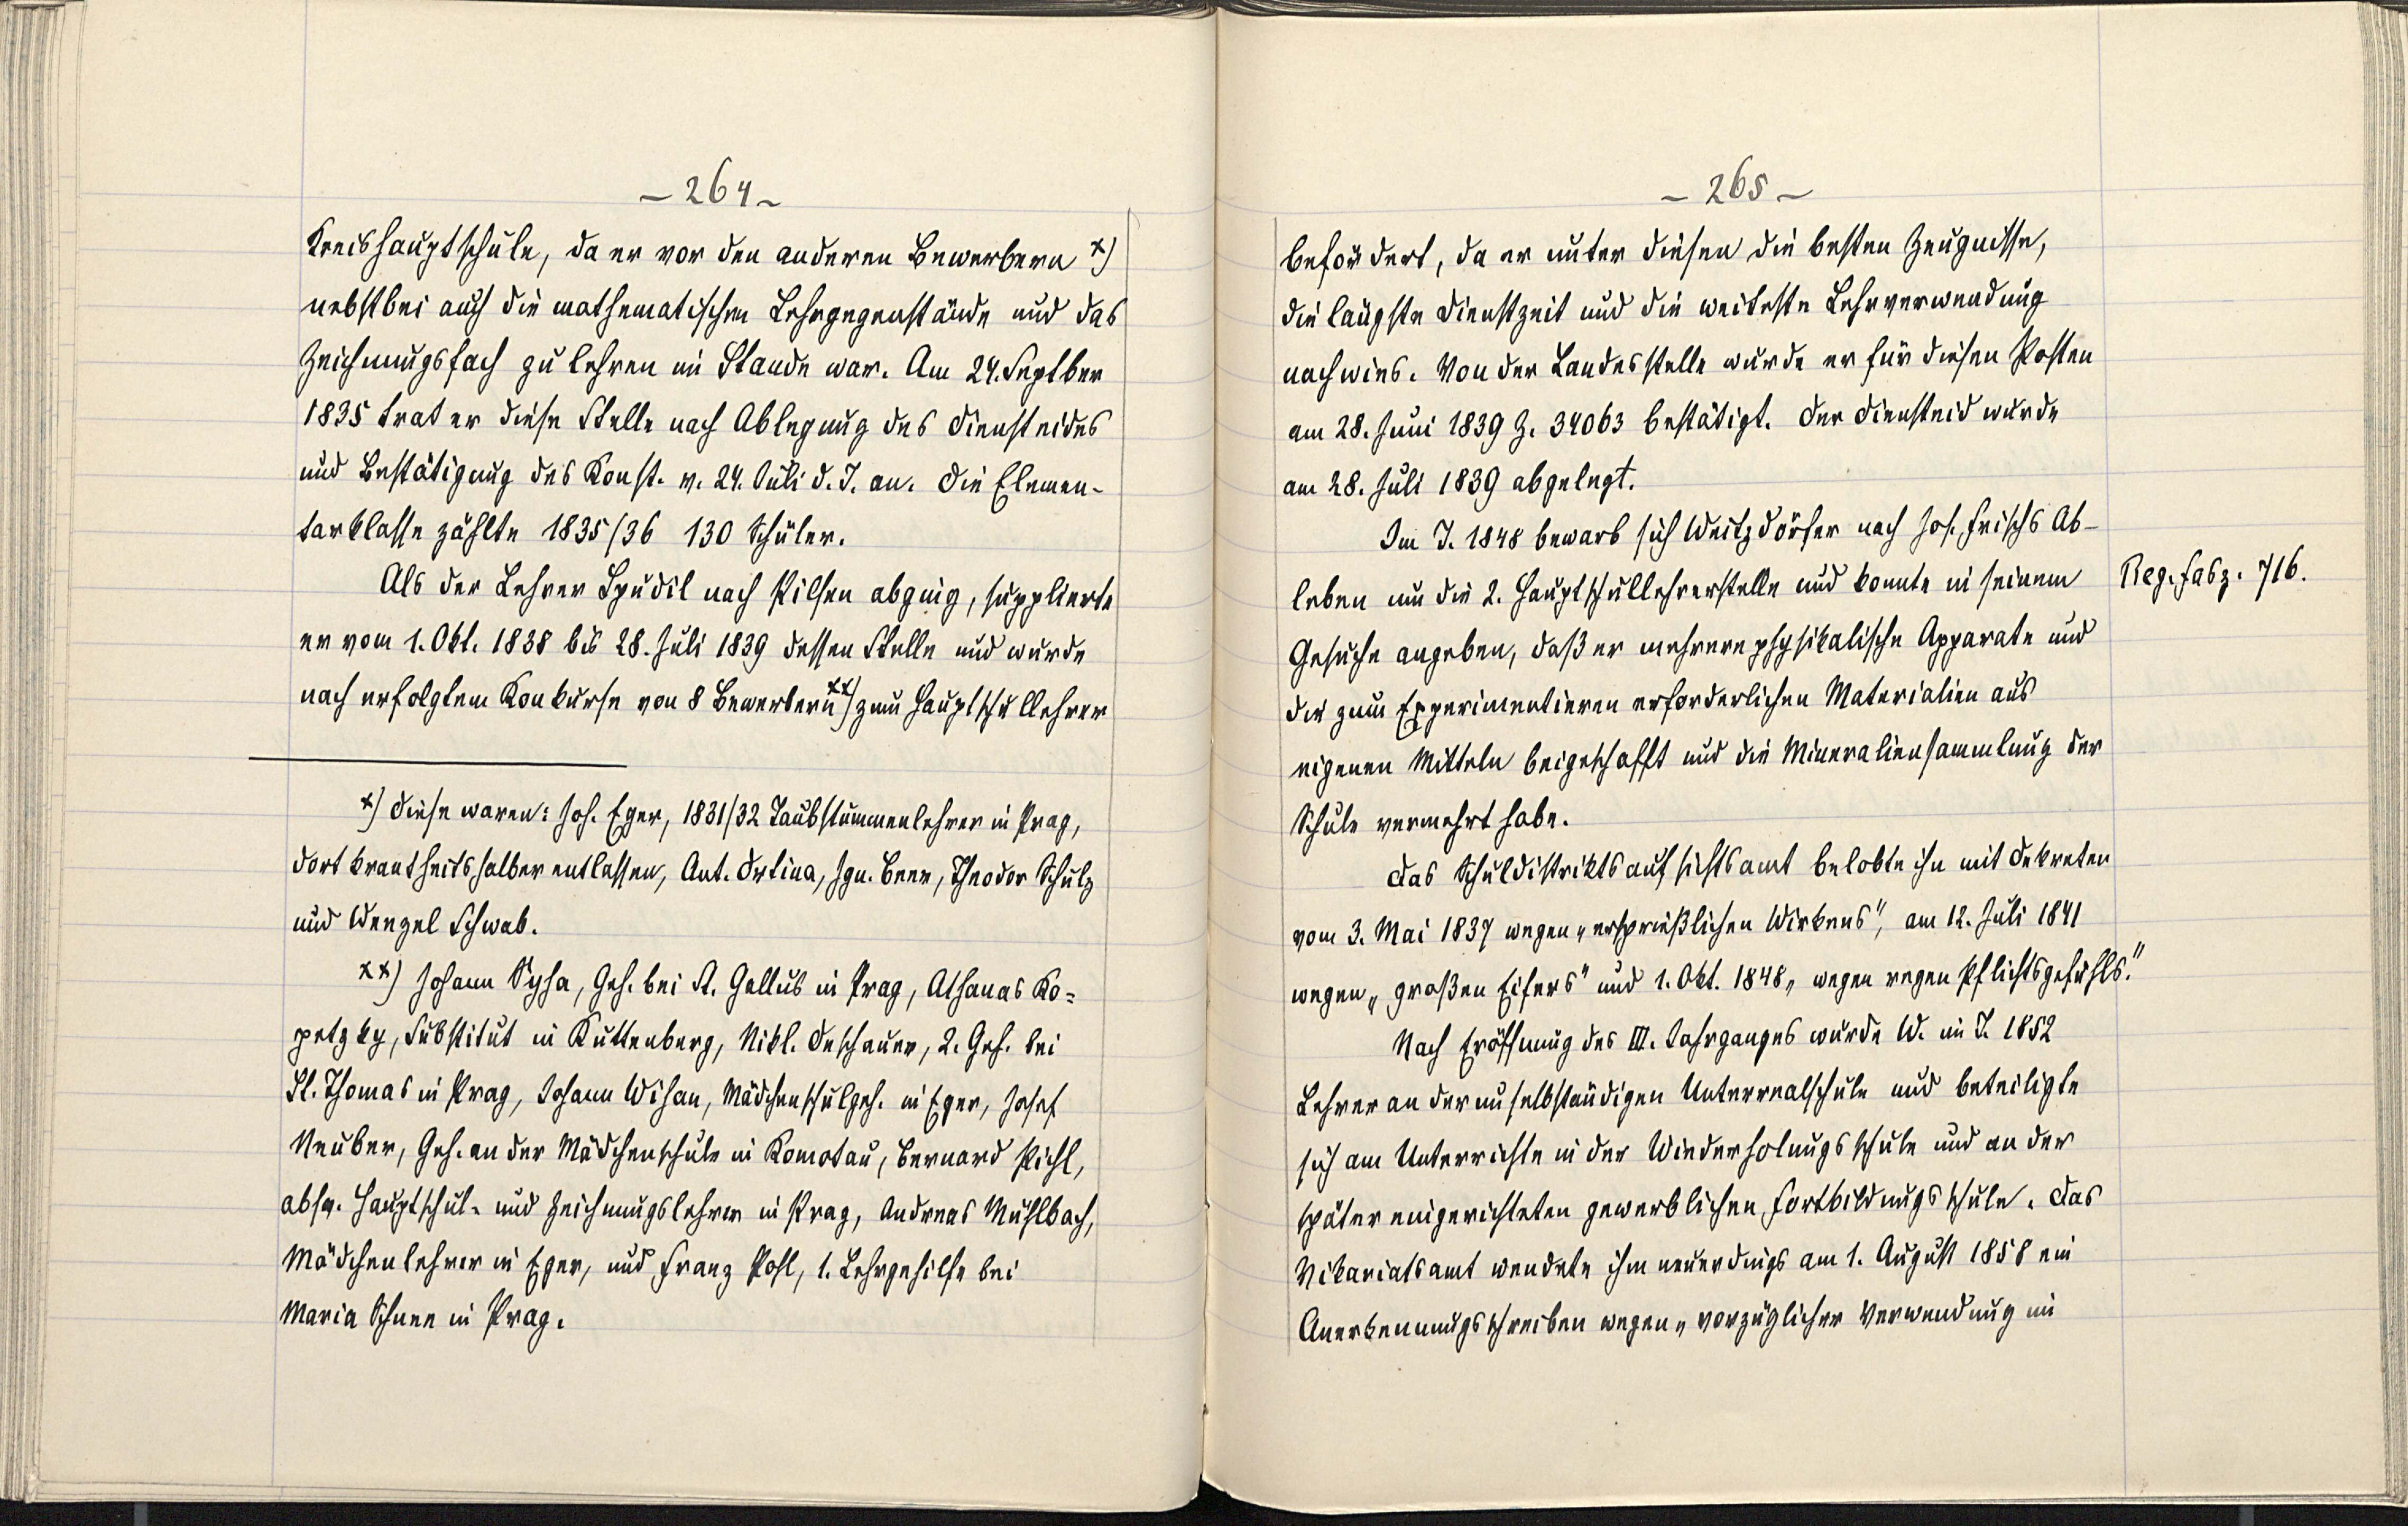 – 264 –
Kreishauptschule, da er vor den anderen Bewerbern x)
nebstbei auch die mathematischen Lehrgegenstände und das
Zeichnungsfach zu lehren im Stande war. Am 24. Septber
1835 trat er diese Stelle nach Ablegung des Diensteides
und Bestätigung des Konst. v. 24. Juli d. J. an. Die Elemen-
tarklasse zählte 1835/36 130 Schüler.
Als der Lehrer Spudil nach Pilsen abging, supplierte
er vom 1. Okt. 1838 bis 28. Juli 1839 dessen Stelle und wurde
nach erfolgtem Konkurse von 8 Bewerbern xx) zum Hauptschullehrer
x) Diese waren: Joh. Eger, 1831/32 Taubstummenlehrer in Prag,
dort krankheitshalber entlassen, Ant. Drtina, Ign. Beer, Theodor Schulz
und Wenzel Schwab.
xx) Johann Sysa, Geh. bei St. Gallus in Prag, Athanas Ko=
petzky, Substitut in Kuttenberg, Nikl. Deschauer, 2. Geh. bei
St. Thomas in Prag, Johann Wihan, Mädchenschulgeh. in Eger, Josef
Neuber, Geh. an der Mädchenschule in Komotau, Bernard Pichl,
absv. Hauptschul- und Zeichnungslehrer in Prag, Andreas Mühlbach,
Mädchenlehrer in Eger, und Franz Pohl, 1. Lehrgehilfe bei
Maria Schnee in Prag.
– 265 –
befördert, da er unter diesen die besten Zeugnisse,
die längste Dienstzeit und die weiteste Lehrverwendung
nachwies. Von der Landesstelle wurde er für diesen Posten
am 28. Juni 1839 Z. 34063 bestätigt. Der Diensteid wurde
am 28. Juli 1839 abgelegt.
Im J. 1848 bewarb sich Weitzdörfer nach Jos. Frischs Ab-
leben um die 2. Hauptschullehrerstelle und konnte in seinem
Reg. Fasz. 716.
Gesuche angeben, daß er mehrere physikalische Apparate und
die zum Experimentieren erforderlichen Materialien aus
eigenen Mitteln beigeschafft und die Mineraliensammlung der
Schule vermehrt habe.
Das Schuldistriktsaufsichtsamt belobte ihn mit Dekreten
vom 3. Mai 1837 wegen „ersprießlichen Wirkens", am 12. Juli 1841
wegen „großen Eifers" und 1. Okt. 1848 „wegen regen Pflichtsgefühls."
Nach Eröffnung des III. Jahrganges wurde W. im J. 1852
Lehrer an der unselbständigen Unterrealschule und beteiligte
sich am Unterrichte in der Wiederholungsschule und an der
später eingerichteten gewerblichen Fortbildungsschule. Das
Vikariatsamt wendete ihm neuerdings am 1. August 1858 ein
Anerkennungsschreiben wegen „vorzüglicher Verwendung im